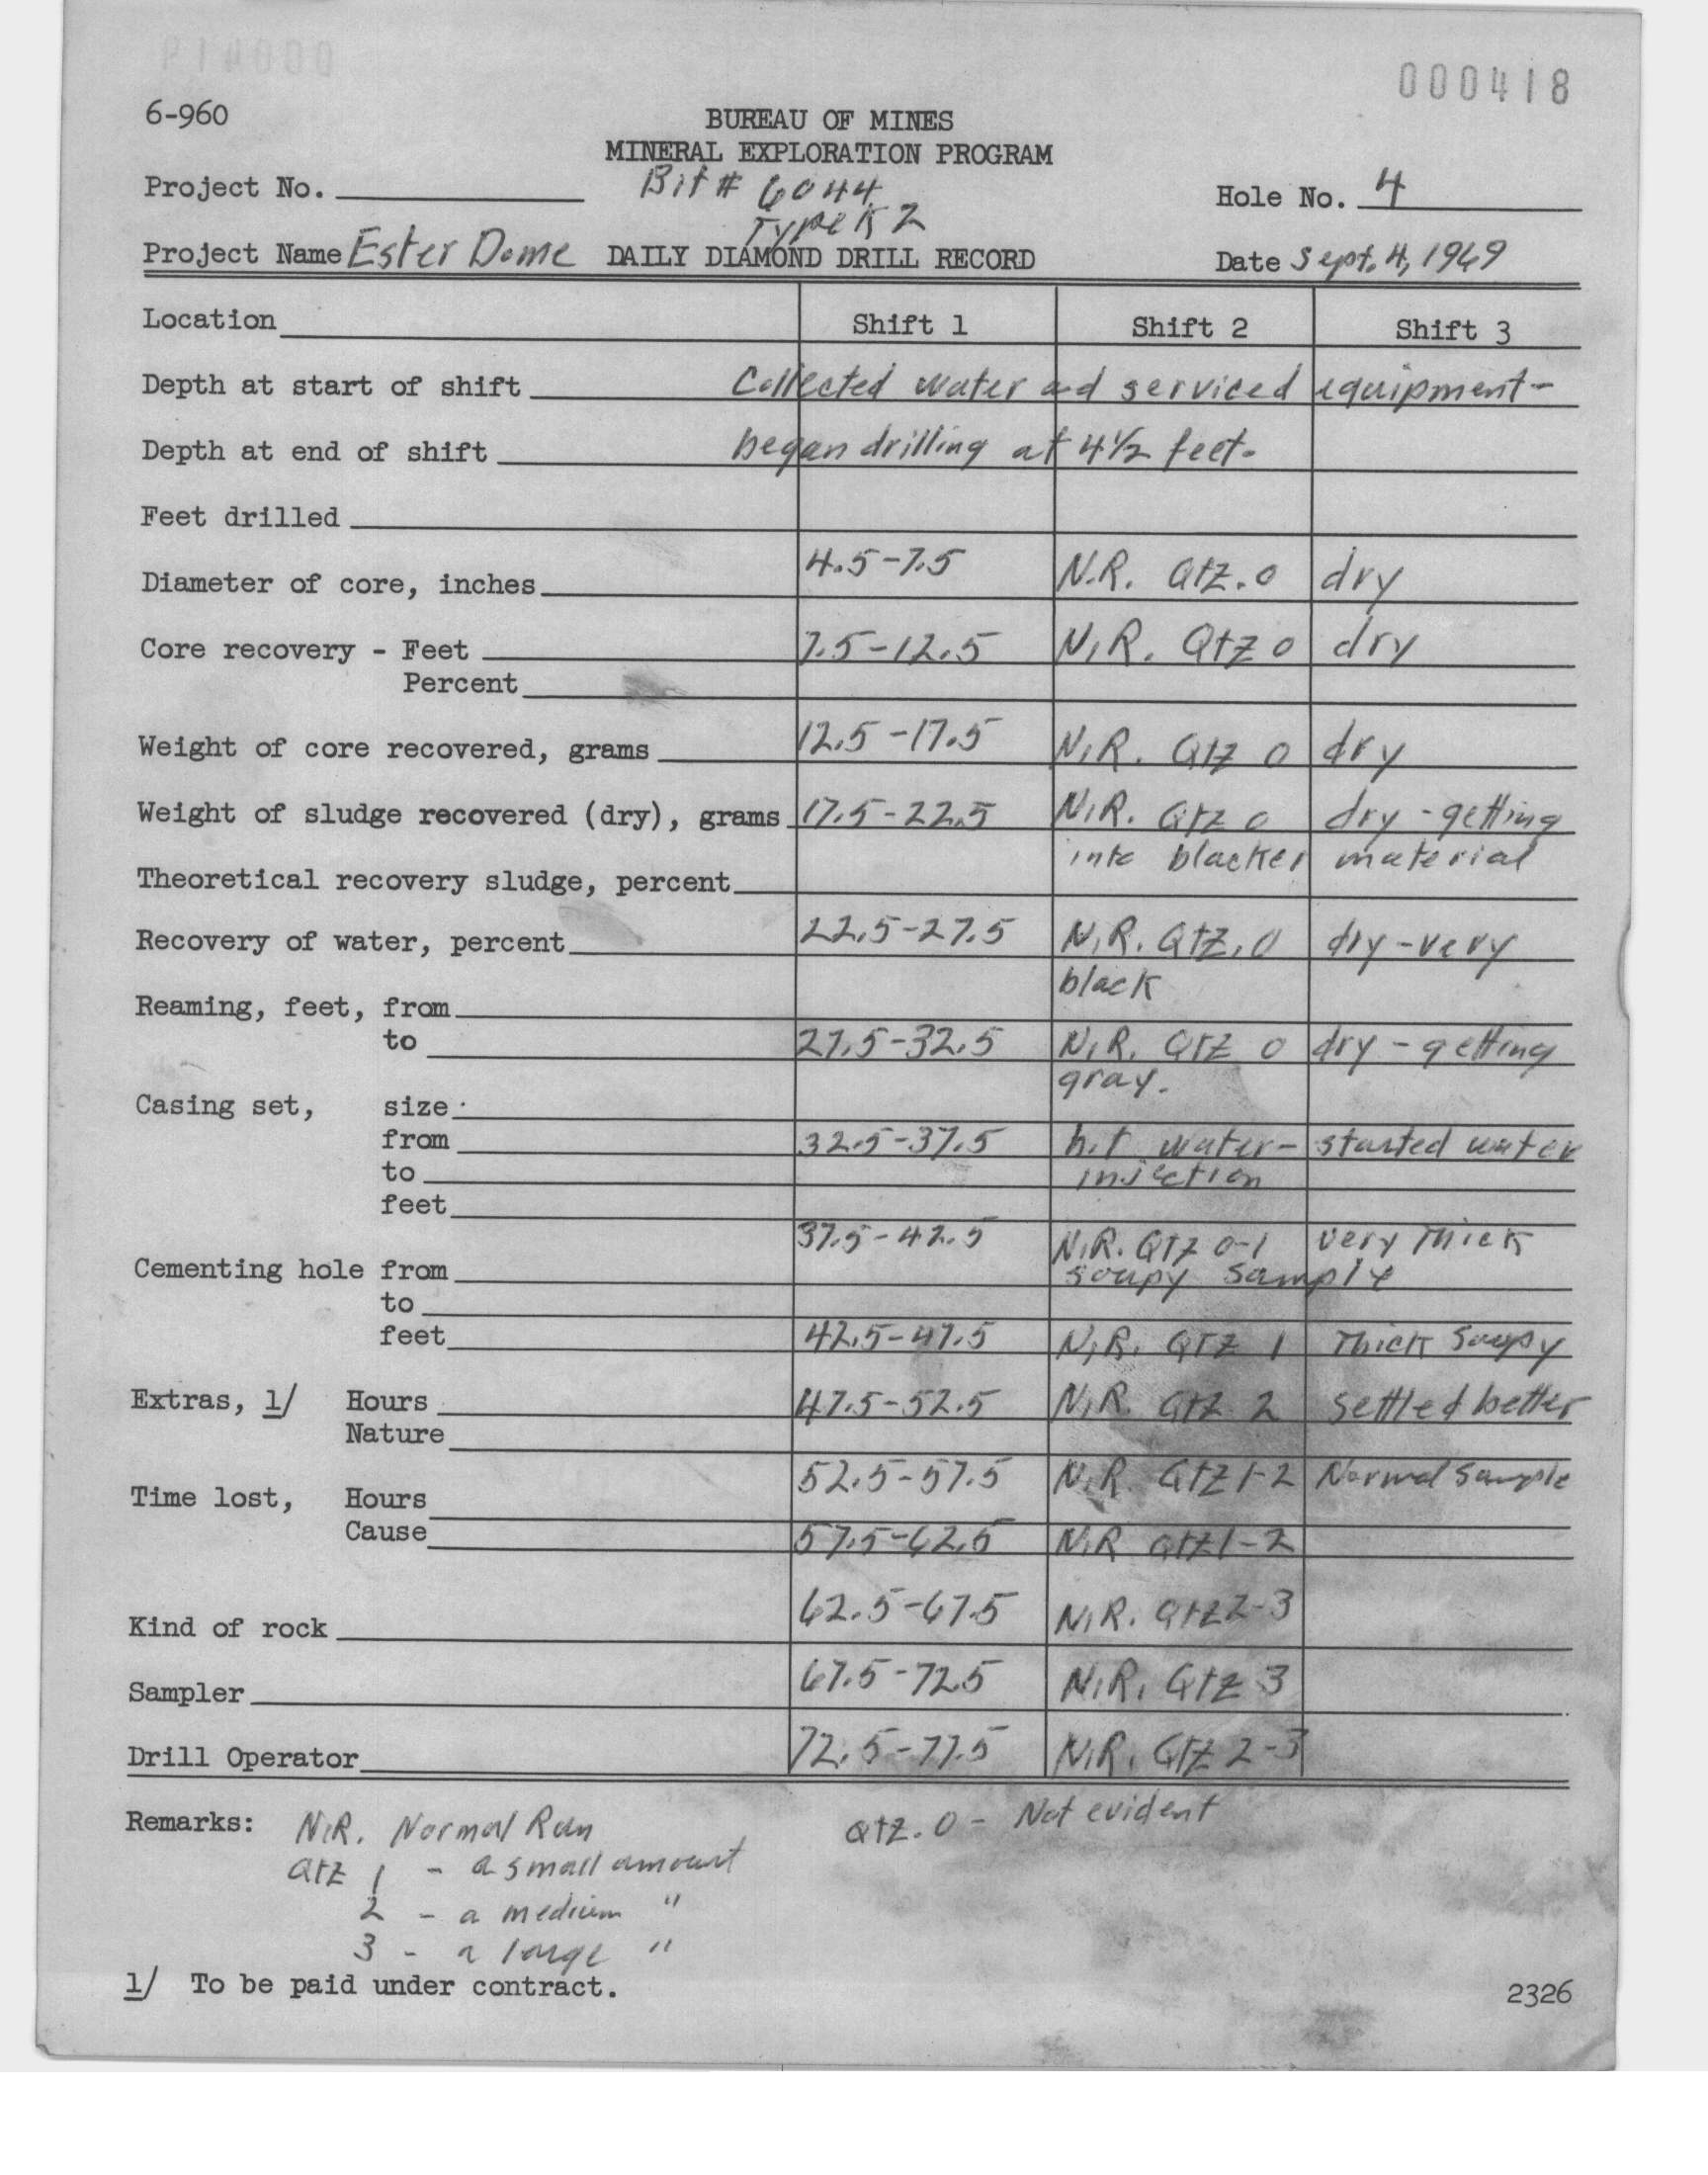 000418
6-960
BUREAU OF MINES
MINERAL EXPLORATION PROGRAM
Project No. Bit # 6044 Hole No. 4
Type K2
Project Name Ester Dome DAILY DIAMOND DRILL RECORD Date Sept. 4, 1969
Location Shift 1 Shift 2 Shift 3
Depth at start of shift Collected water and serviced equipment-
Depth at end of shift began drilling at 4½ feet.
Feet drilled
Diameter of core, inches 4.5-7.5 N.R. Qtz. 0 dry
Core recovery - Feet 7.5-12.5 N.R. Qtz 0 dry
Percent
Weight of core recovered, grams 12.5-17.5 N.R. Qtz 0 dry
Weight of sludge recovered (dry), grams 17.5-22.5 N.R. Qtz 0 dry - getting
into blacker material
Theoretical recovery sludge, percent
Recovery of water, percent 22.5-27.5 N.R. Qtz. 0 dry - very
black
Reaming, feet, from
to 27.5-32.5 N.R. Qtz 0 dry - getting
gray.
Casing set, size
from 32.5-37.5 hit water- started water
to injection
feet
37.5-42.5 N.R. Qtz 0-1 very Thick
Cementing hole from soupy sample
to
feet 42.5-47.5 N.R. Qtz 1 Thick Soupy
Extras, 1/ Hours 47.5-52.5 N.R. Qtz 2 settled better
Nature
52.5-57.5 N.R. Qtz 1-2 Normal Sample
Time lost, Hours
Cause 57.5-62.5 N.R Qtz 1-2
Kind of rock 62.5-67.5 N.R. Qtz 2-3
Sampler 67.5-72.5 N.R. Qtz 3
Drill Operator 72.5-77.5 N.R. Qtz 2-3
Remarks: N.R. Normal Run Qtz. 0 - Not evident
Qtz 1 - a small amount
2 - a medium "
3 - a large "
1/ To be paid under contract.
2326